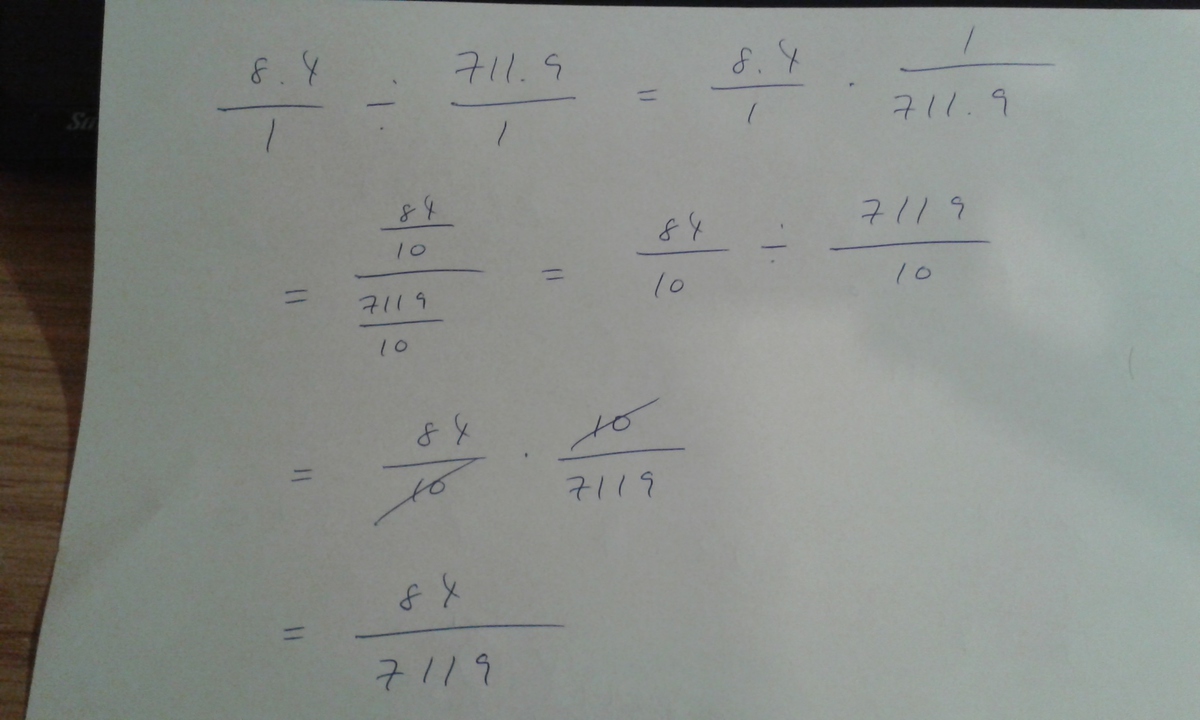 8.4/1 ÷ 711.9/1 = 8.4/1 · 1/711.9
= (84/10)/(7119/10) = 84/10 ÷ 7119/10
= 84/10 · 10/7119
= 84/7119